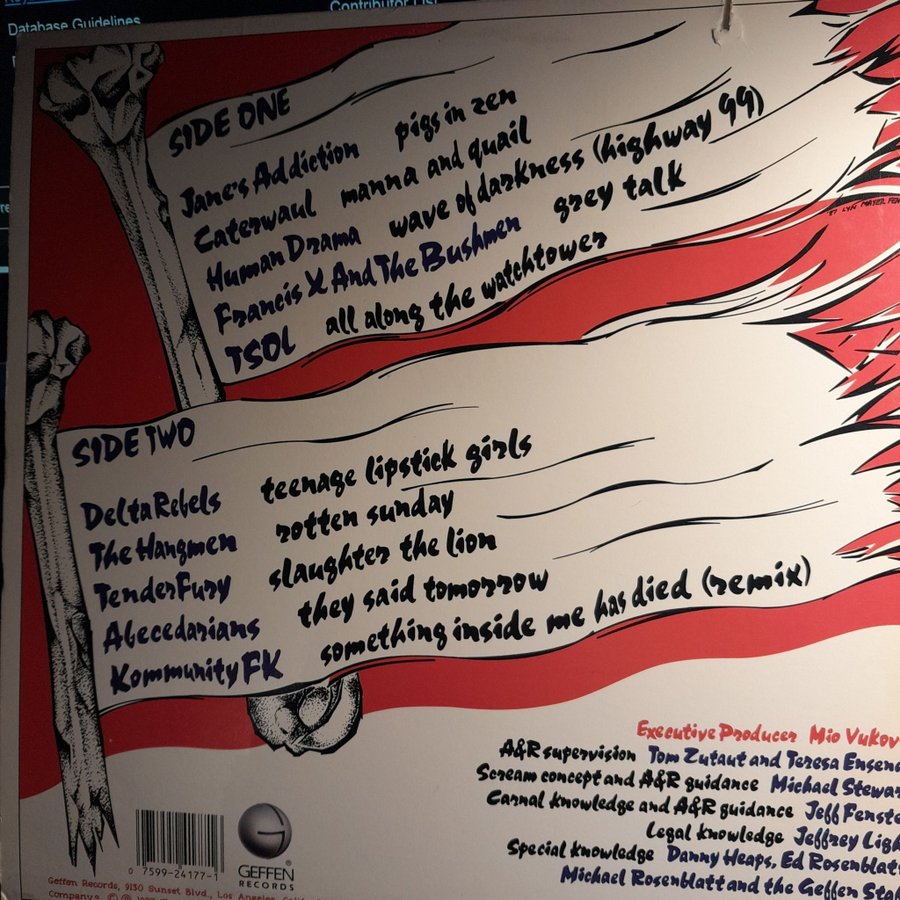 Contributor List
Database Guidelines
SIDE ONE
Jane's Addiction pigs in zen
Caterwaul manna and quail
Human Drama wave of darkness (highway 99)
Francis X And The Bushmen grey talk
TSOL all along the watchtower
'87 LYN MAYER
SIDE TWO
Delta Rebels teenage lipstick girls
The Hangmen rotten sunday
TenderFury slaughter the lion
Abecedarians they said tomorrow
Kommunity FK something inside me has died (remix)
Executive Producer Mio Vukov
A&R supervision Tom Zutaut and Teresa Ensena
Scream concept and A&R guidance Michael Stewar
Carnal knowledge and A&R guidance Jeff Fenste
Legal knowledge Jeffrey Ligh
Special knowledge Danny Heaps, Ed Rosenblatt
Michael Rosenblatt and the Geffen Sta
0 7599-24177-1
GEFFEN
RECORDS
Geffen Records, 9130 Sunset Blvd., Los Angeles,